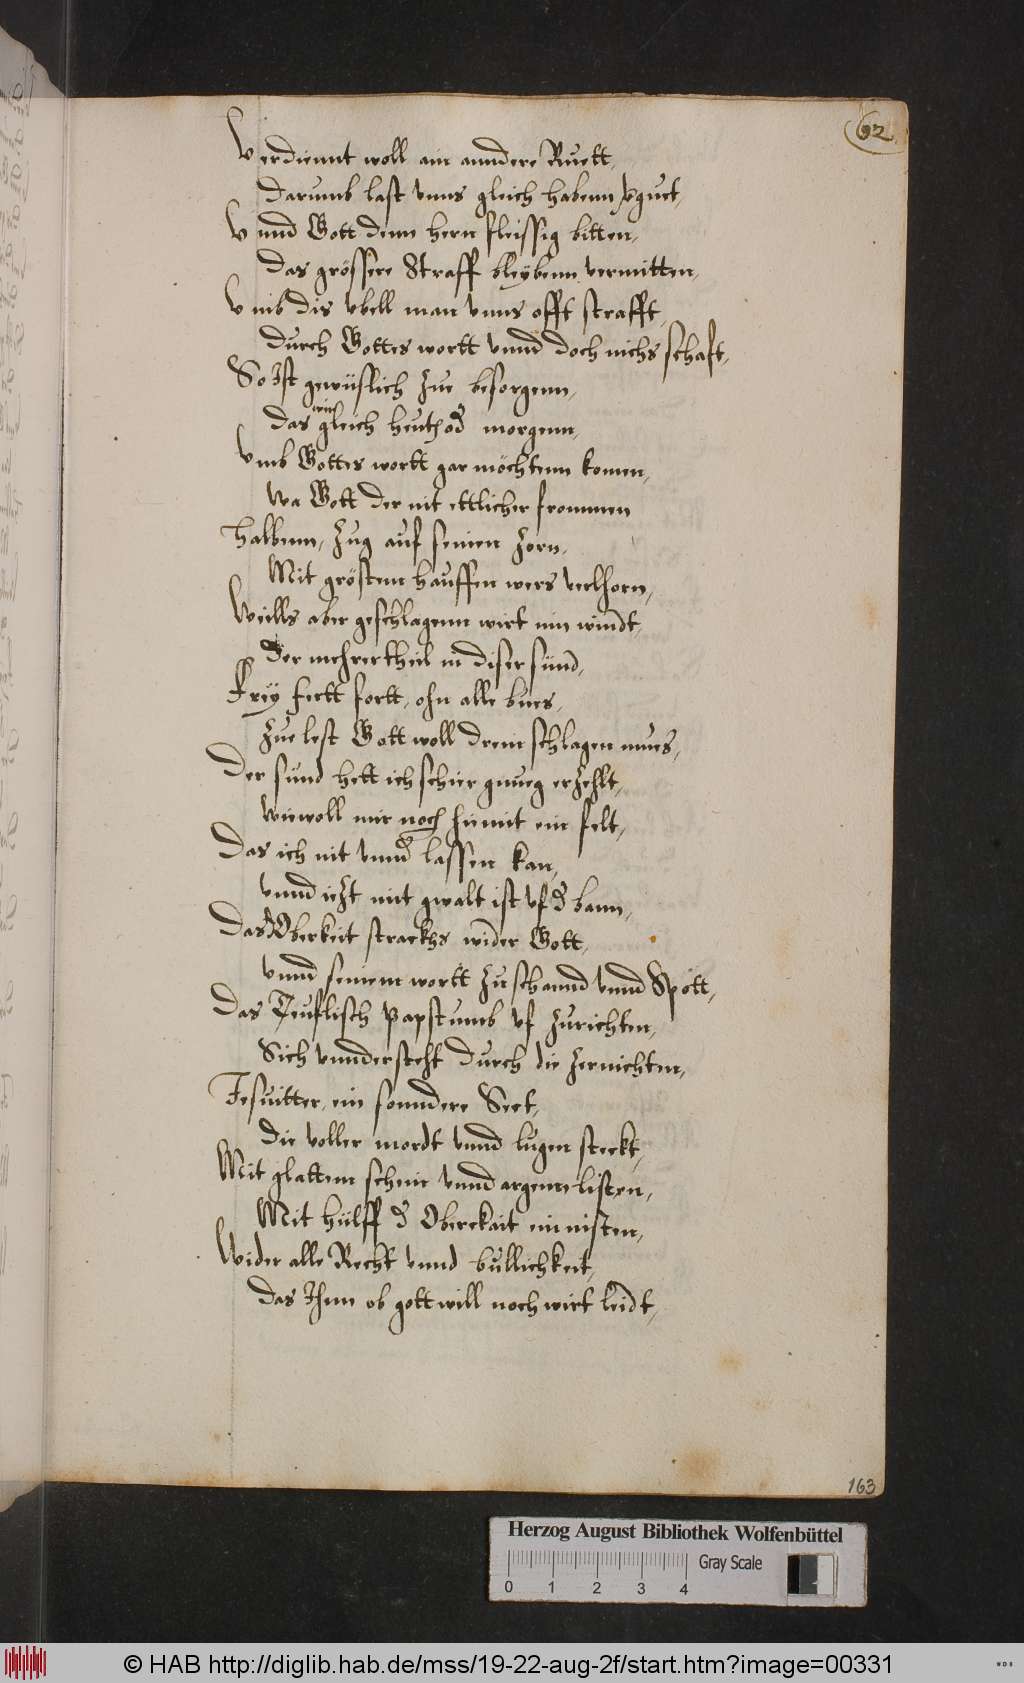 92
Verdiennt woll ain anndere Ruett,
Darumb last unns gleich habenn vergutt,
Unnd Gott denn hern fleissig bitten,
Das grössere Straff bleybenn vermitten,
Umb dis ubell man unns offt strafft,
Durch Gottes wortt unnd doch nichs schafft,
So Ist gewüslich zue besorgenn,
Das wir gleich heut od morgenn,
Umb Gottes wortt gar möchtenn komen,
Wa Gott der nit ettlicher frommen
Halbenn, Zug auf seinen Zorn,
Mit gröstem hauffen wers verlhorn,
Weills aber geschlagenn wirt inn windt,
Der mehrertheil in diser sünd,
Frey fertt fortt, ohn alle bues,
Zue lest Gott woll drein schlagen mues,
Der sünd hett ich schier gnueg erzehlt,
Wiewoll mir noch hiemit ein felt,
Das ich nit unnd lassen kan,
unnd iezt mit gwalt ist uf d bann,
Das Oberkeit strackhs wider Gott,
unnd seinem wortt zu schannd unnd Spott,
Das Teuflisch Papstumb uf zurichten,
Sich unndersteht durch die zernichten,
Jesuitter, ein sonndere Sect,
Die voller mordt unnd lugen steckt,
Mit glattem schein unnd argenn listen,
Mit hülff d Oberckait einnisten,
Wider alle Recht unnd bullichkeit,
Das Ihnn ob gott will noch wirt leidt,
163
Herzog August Bibliothek Wolfenbüttel
Gray Scale
0 1 2 3 4
© HAB http://diglib.hab.de/mss/19-22-aug-2f/start.htm?image=00331